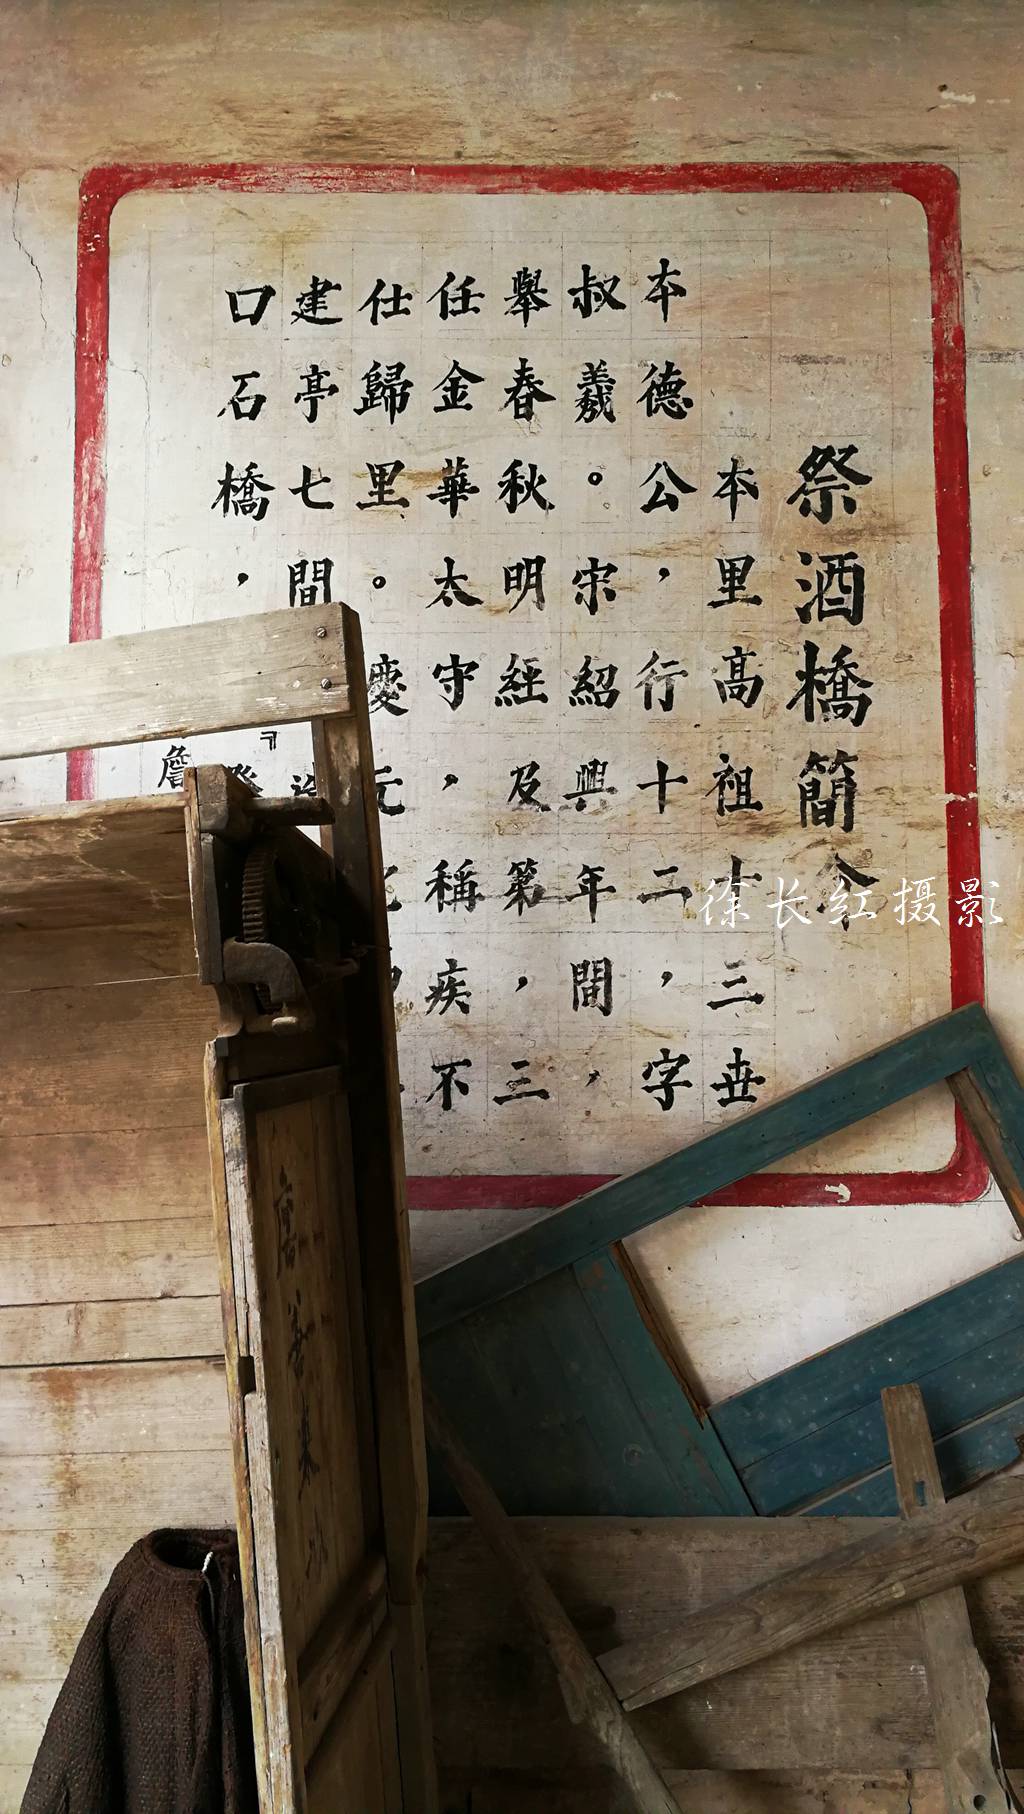 祭酒橋簡介
本里高祖十三世
本德公，行十二，字
叔羲。宋紹興年間，
舉春秋明經及第，三
任金華太守，稱疾不
仕歸里。慶元
建亭七間
口石橋，
詹
徐长红摄影